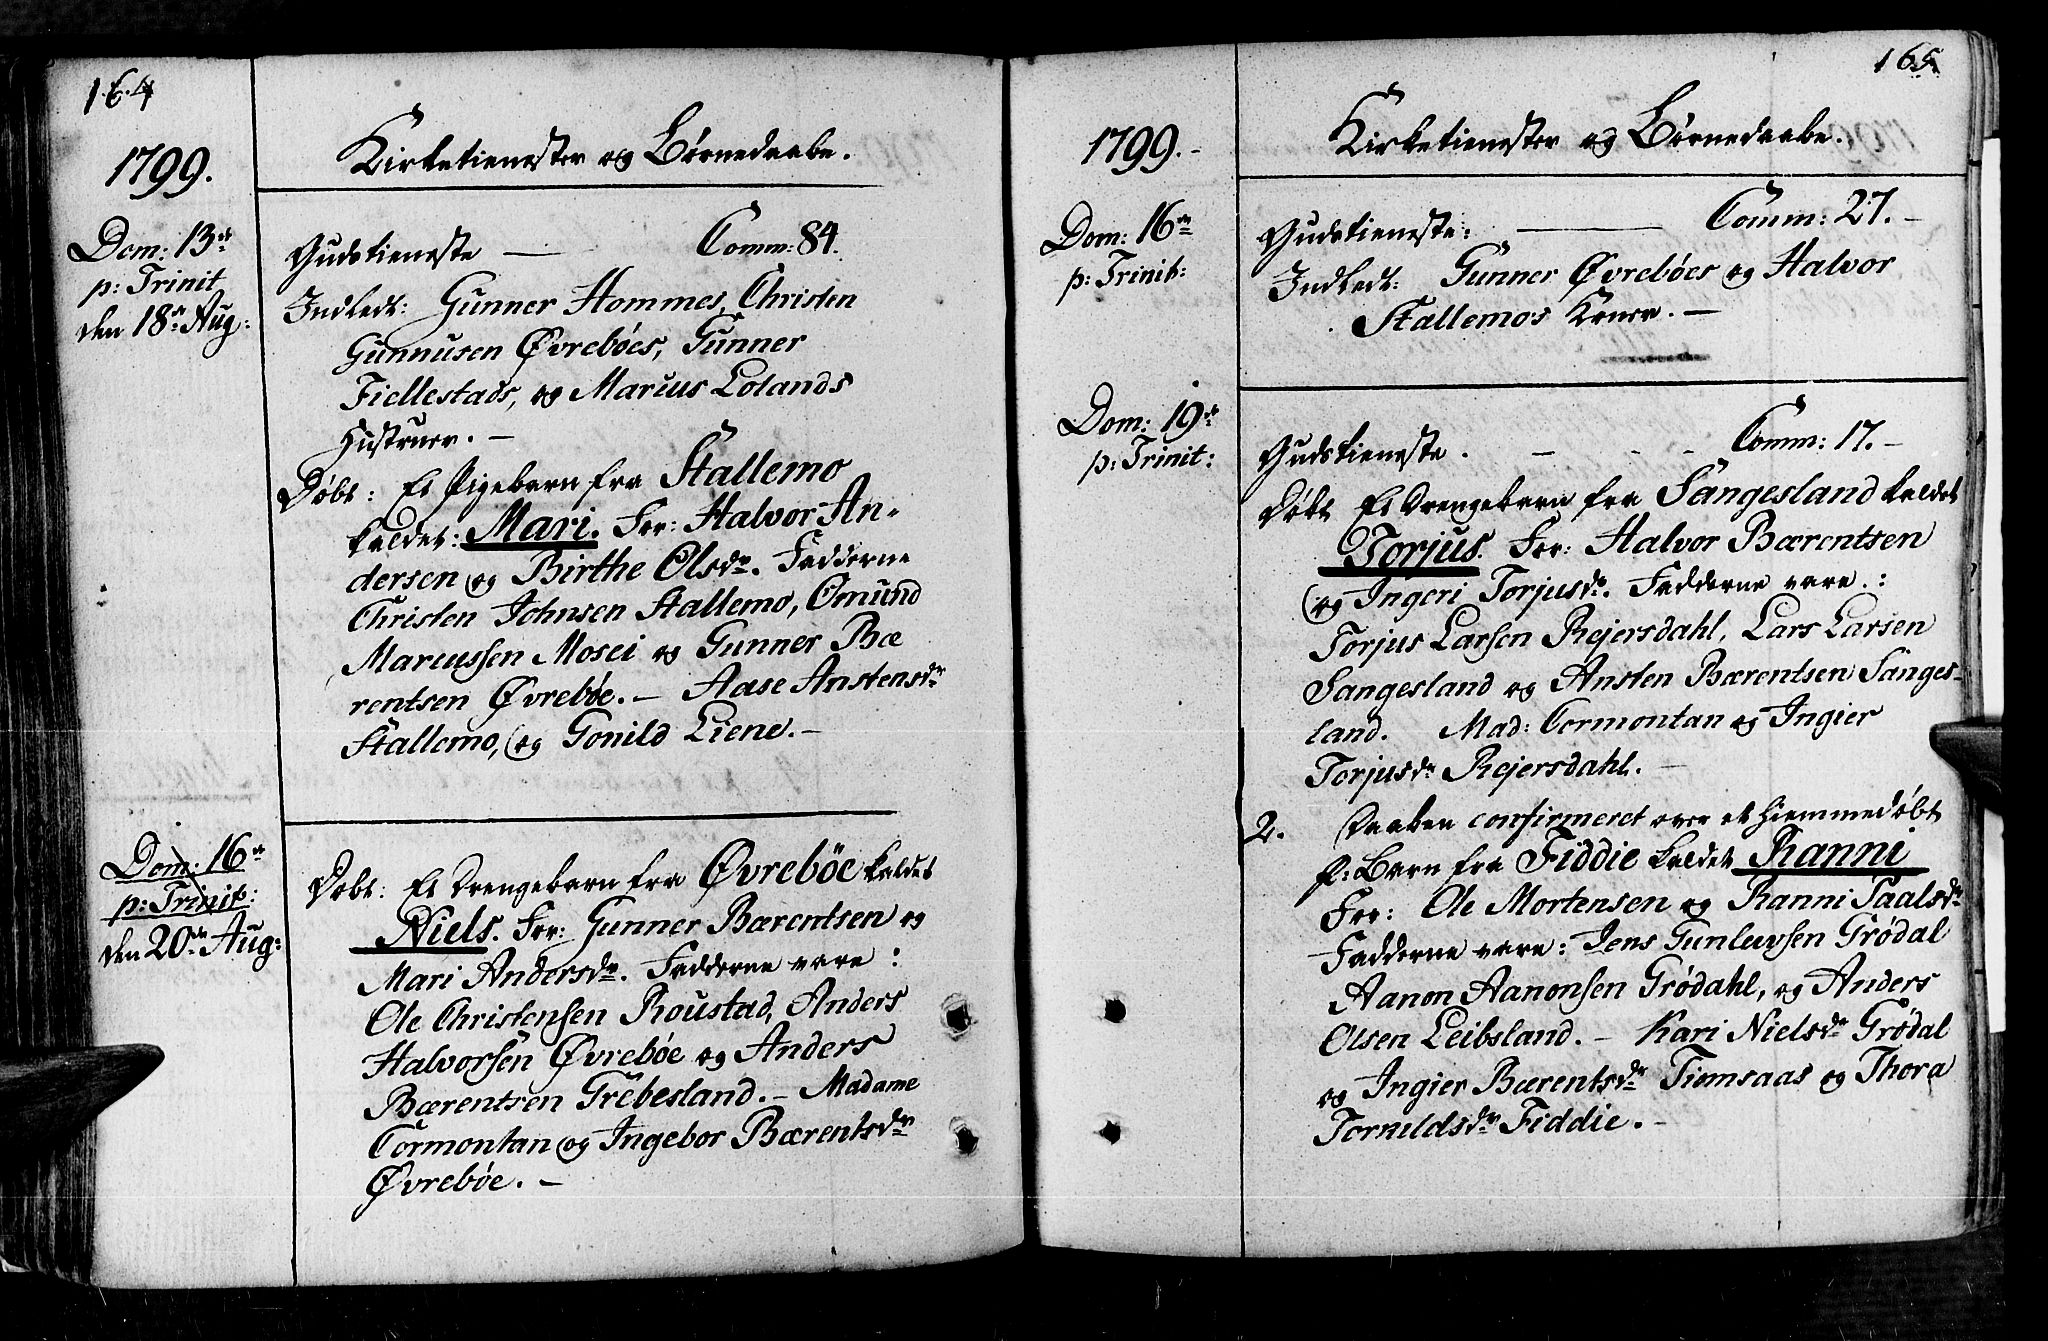 164
1799.
Kirketienester og Børnedaabe.
Dom: 13de
p: Trinit
den 18de Aug:
Gudstieneste — Comm: 84.
Indledt: Gunner Hommes, Christen
Gunnusen Øvrebøes, Gunner
Fiellestads, og Marcus Lolands
Hustruer. —
Døbt: Et Pigebarn fra Stallemo
kaldet: Mari. For: Halvor An-
dersen og Birthe Olsdr. Fadderne
Christen Johnsen Stallemo, Omund
Marcussen Mosei og Gunner Bæ
rentsen Øvrebøe. — Aase Anstensdr
Stallemo, og Gonild Liene. —
Dom: 16de
p: Trinit:
den 20de Aug:
Døbt: Et Drengebarn fra Øvrebøe kaldet
Niels. For: Gunner Bærentsen og
Mari Andersdr. Fadderne vare:
Ole Christensen Roustad, Anders
Halvorsen Øvrebøe og Anders
Bærentsen Grebesland. — Madame
Cormontan og Ingebor Bærentsdr
Øvrebøe. —
165.
1799. —
Kirketienester og Børnedaabe.
Dom: 16de
p: Trinit:
Gudstieneste: — Comm: 27. —
Indledt: Gunner Øvrebøes og Halvor
Stallemos Koner. —
Dom: 19de
p: Trinit:
Gudstieneste. — - - Comm: 17. —
Døbt Et Drengebarn fra Sangesland kaldet
Torjus. For: Halvor Bærentsen
og Ingeri Torjusdr. Fadderne vare:
Torjus Larsen Rejersdahl, Lars Larsen
Sangesland og Ansten Bærentsen Sanges-
land. Mad: Cormontan og Ingier
Torjusdr Rejersdahl. —
2. Daaben confirmeret over et Hiemmedøbt
p: Barn fra Fiddie kaldet Ranni
For: Ole Mortensen og Ranni Saalsdr
Fadderne vare: Jens Gunluvsen Grødal
Aanon Aanonsen Grødahl, og Anders
Olsen Leibsland. — Kari Nielsdr Grødal
og Ingier Bærentsdr Timsaas og Thora
Tornildsdr Fiddie. —